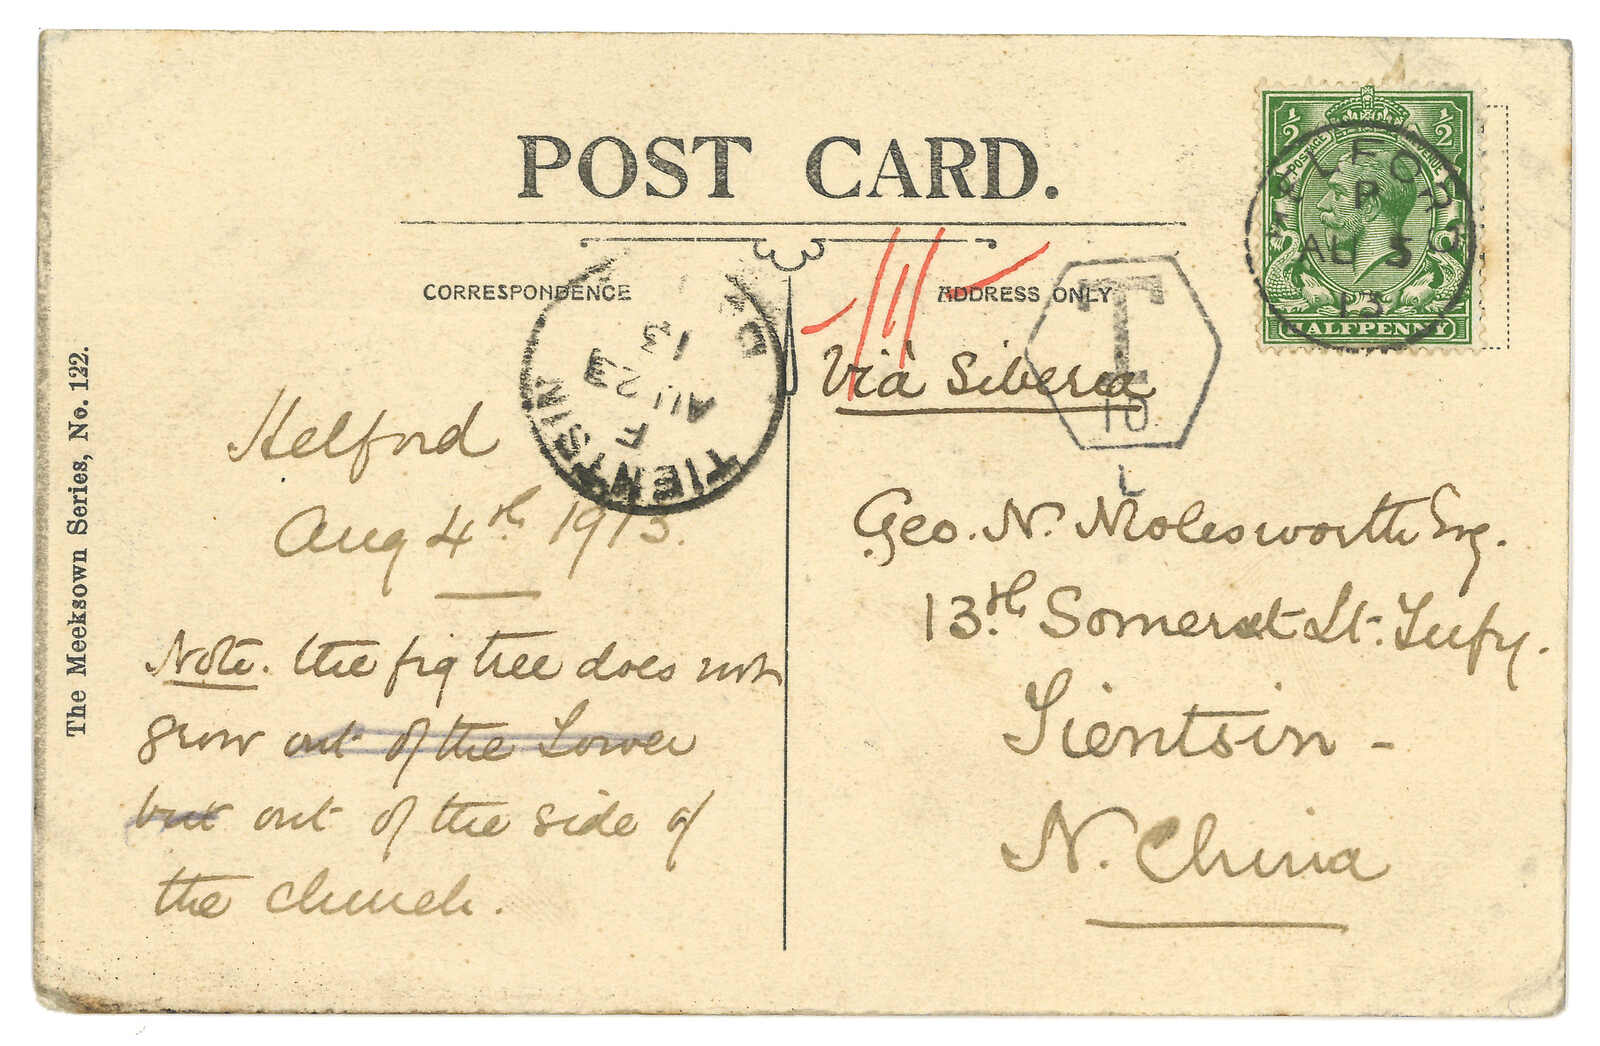 POST CARD.
CORRESPONDENCE
ADDRESS ONLY
The Meeksown Series, No. 122.
½ ½
POSTAGE REVENUE
HALFPENNY
HELFORD
AU 5
13
TIENTSIN
F
AU 23
13
T
10
L
Viâ Siberia
Helford
Aug 4th 1913.
Note. the fig tree does not
grow out of the Tower
but out of the side of
the church.
Geo. N. Molesworth Esq.
13th Somerset Lt. Infy.
Tientsin -
N. China